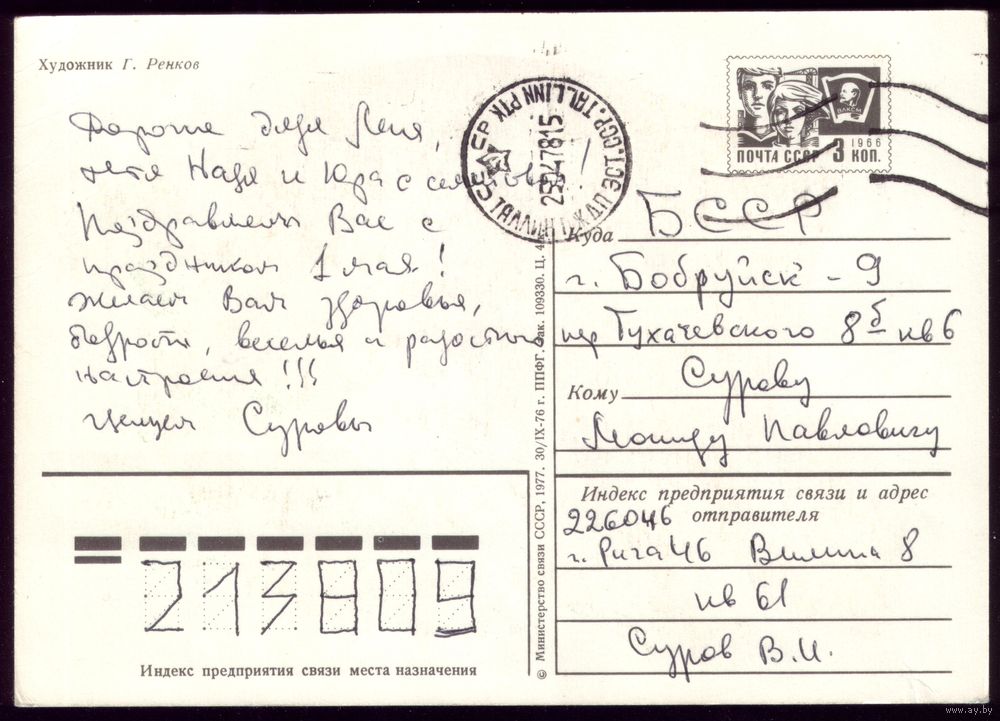 Художник Г. Ренков
Дорогие дядя Леня,
тетя Надя и Юра с семьей
Поздравляем Вас с
праздником 1 мая!
желаем Вам здоровья,
бодрости, веселья и радостного
настроения!!!
Целуем Суровы
ТАЛЛИНН ЖДП ЭСТ. ССР. TALLINN PTK
28 4 78 15
ВЛКСМ
1966
ПОЧТА СССР 3 КОП.
Куда БССР
г. Бобруйск - 9
пер Тухачевского 8б кв 6
Кому Сурову
Леониду Павловичу
Индекс предприятия связи и адрес
отправителя
226046
г. Рига 46 Вилиня 8
кв 61
Суров В.И.
213809
Индекс предприятия связи места назначения
© Министерство связи СССР, 1977. 30/IX-76 г. ППФГ. Зак. 109330. Ц. 4 к.
www.ay.by